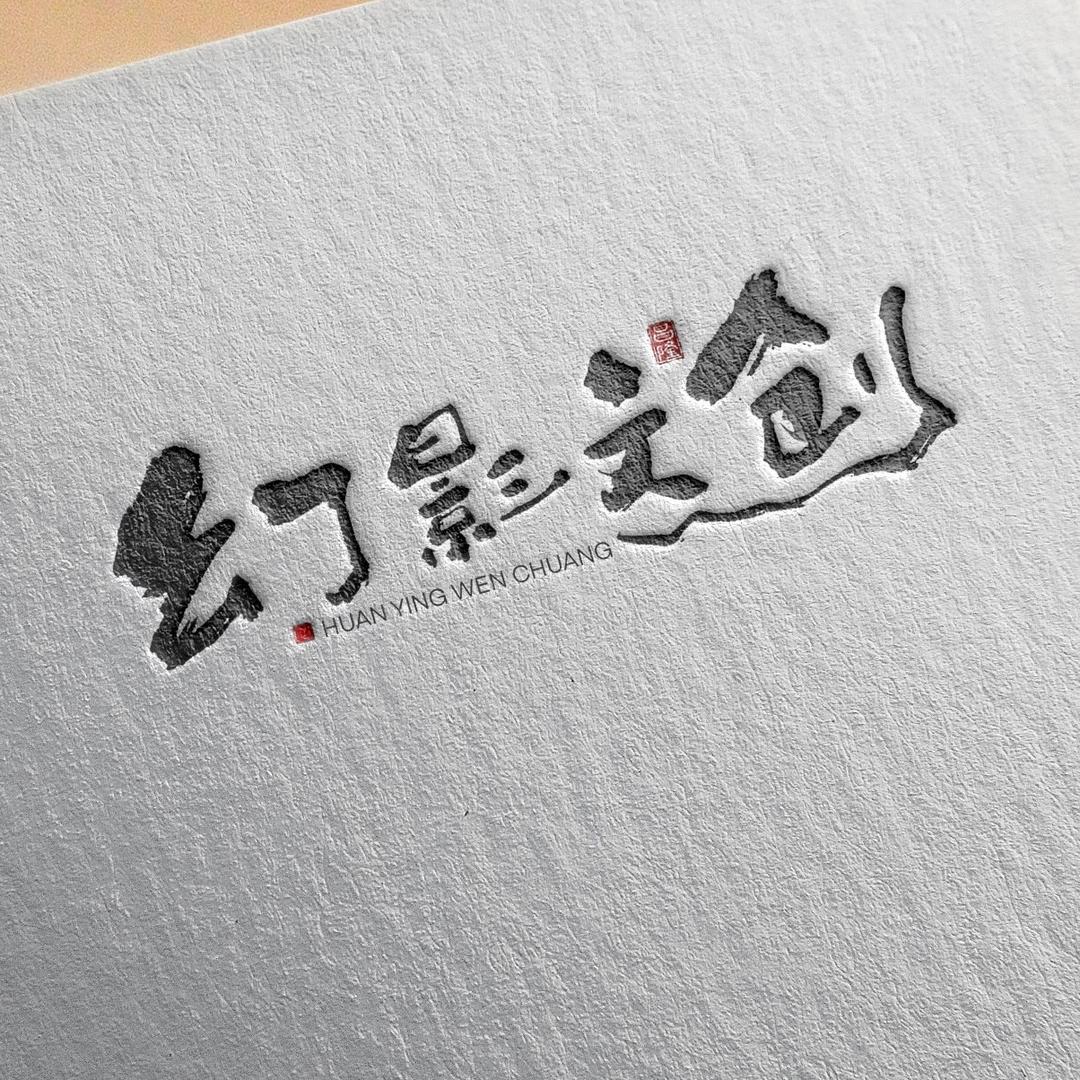 幻影文创
昌隆
HUAN YING WEN CHUANG